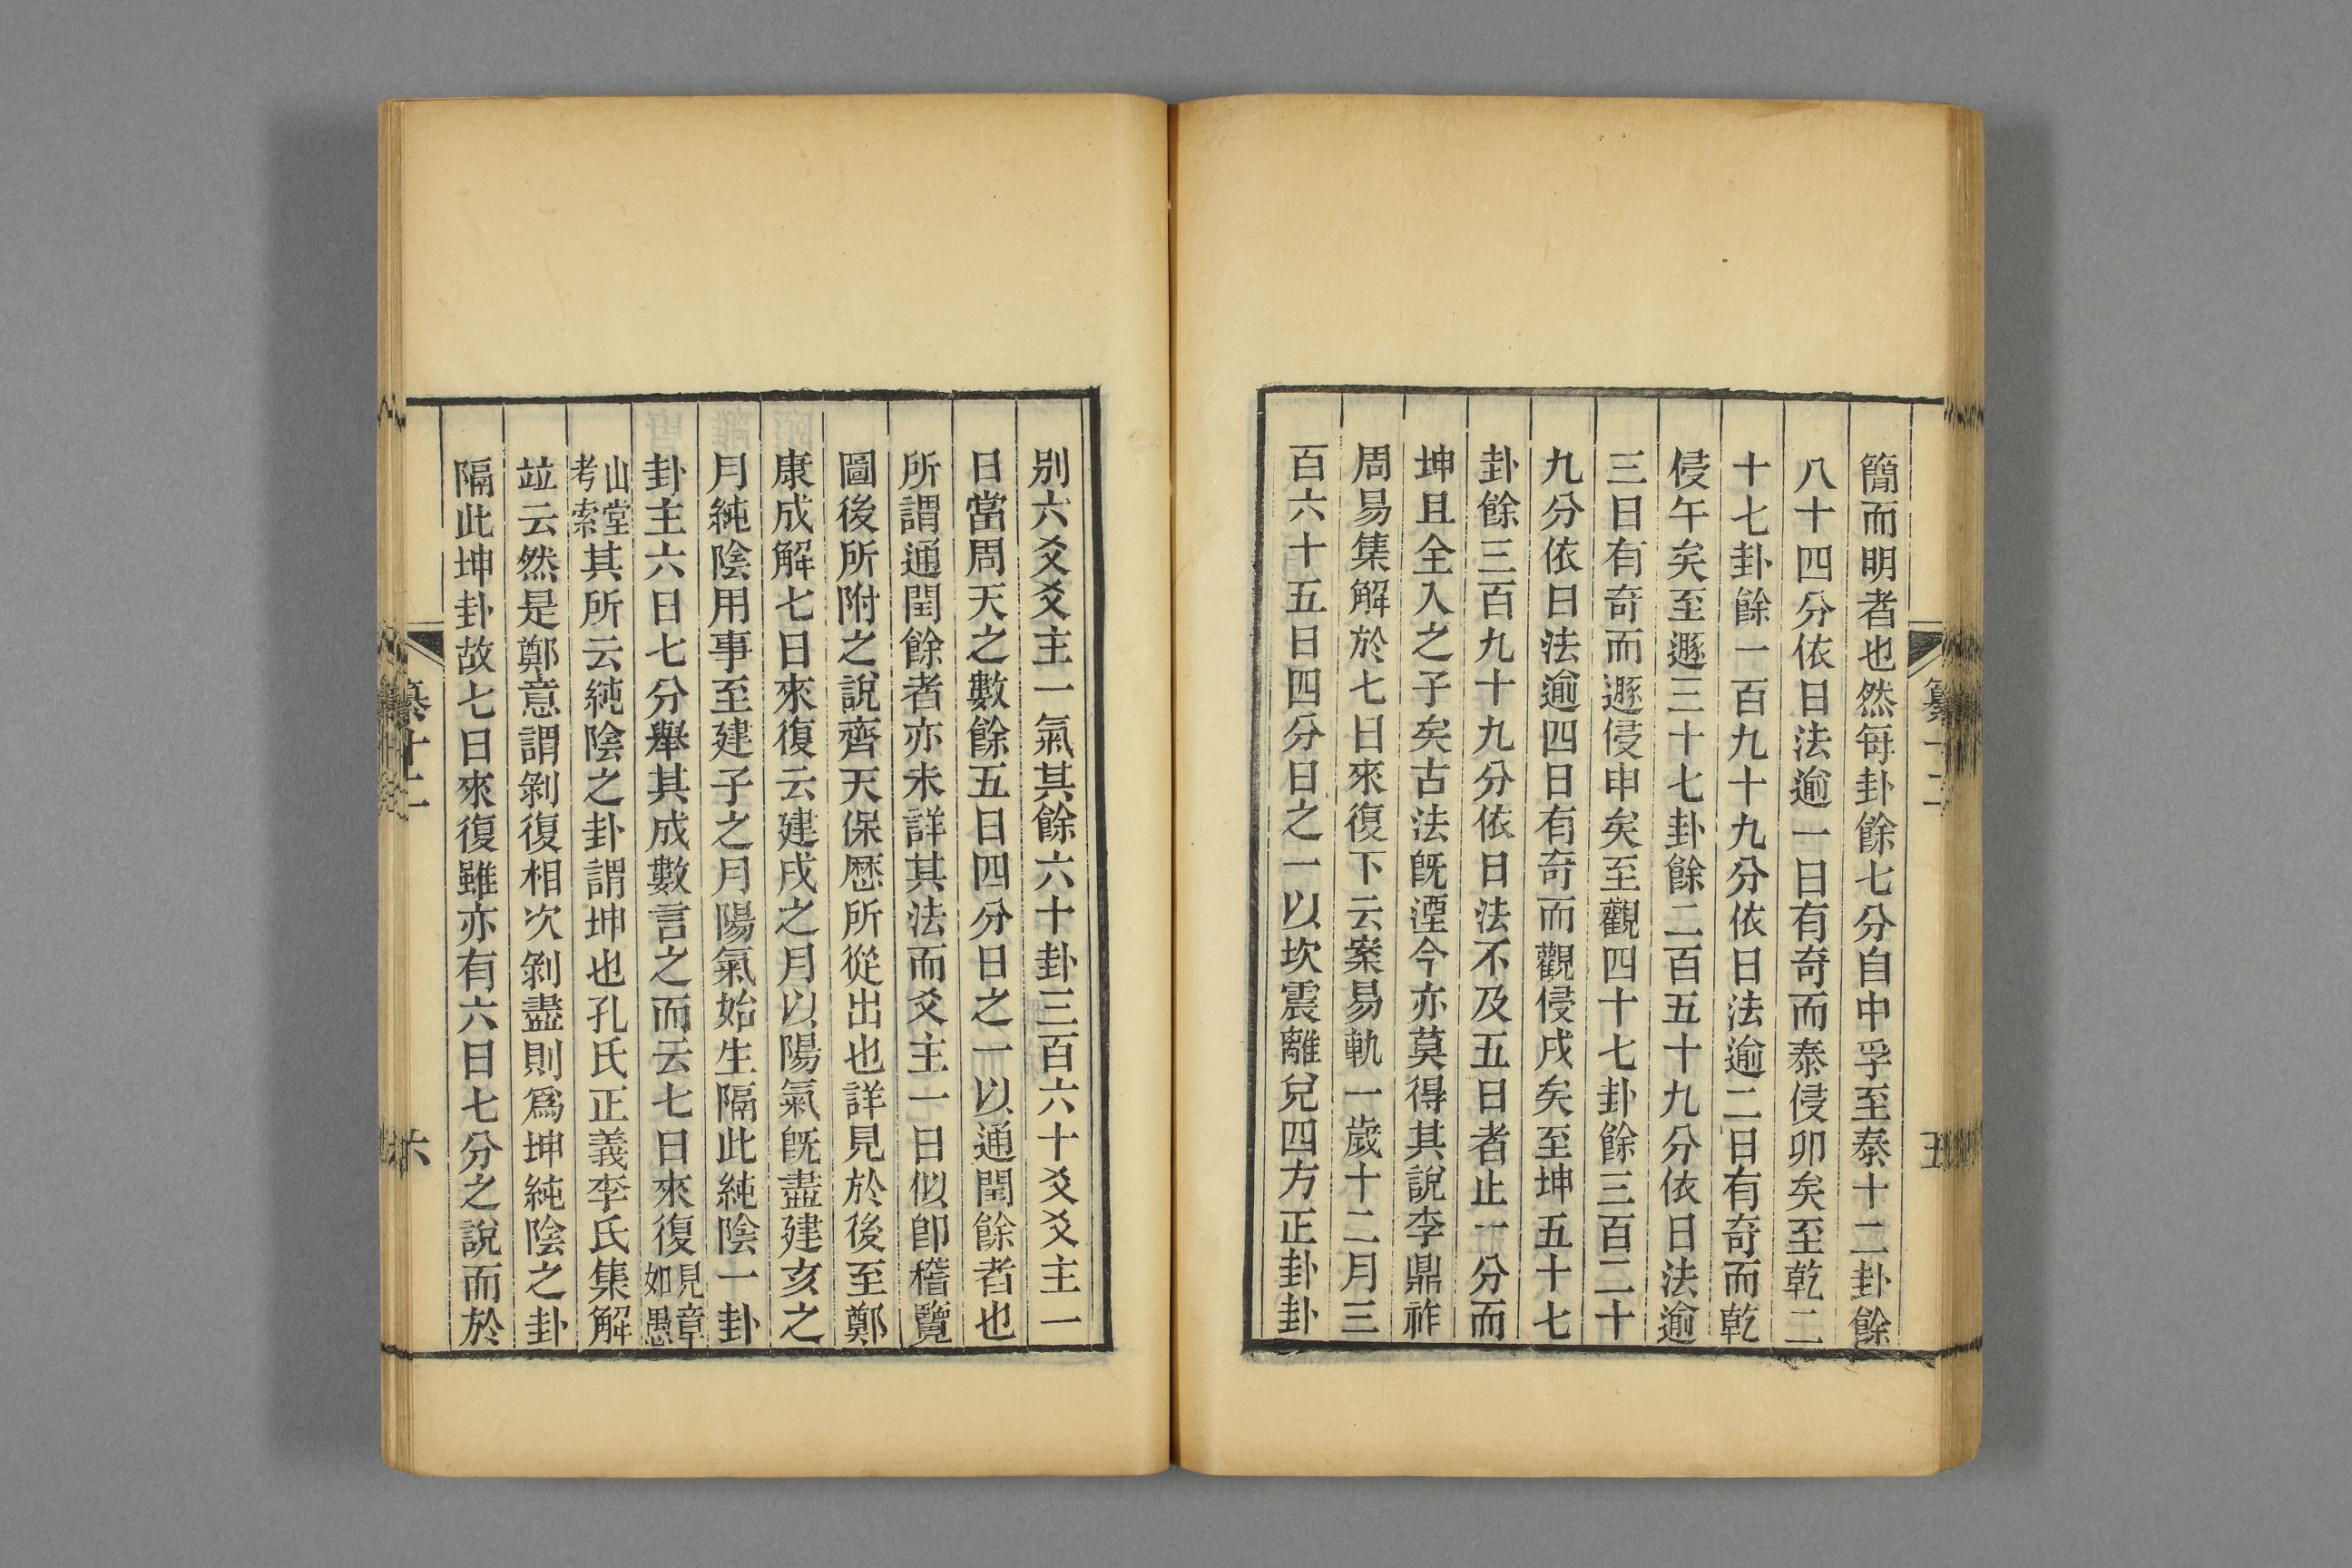 簡而明者也然每卦餘七分自中孚至泰十二卦餘
八十四分依日法逾一日有奇而泰侵卯矣至乾二
十七卦餘一百九十九分依日法逾二日有奇而乾
侵午矣至遯三十七卦餘二百五十九分依日法逾
三日有奇而遯侵申矣至觀四十七卦餘三百二十
九分依日法逾四日有奇而觀侵戌矣至坤五十七
卦餘三百九十九分依日法不及五日者止一分而
坤且全入之子矣古法旣湮今亦莫得其說李鼎祚
周易集解於七日來復下云案易軌一歲十二月三
百六十五日四分日之一以坎震離兌四方正卦卦
別六爻爻主一氣其餘六十卦三百六十爻爻主一
日當周天之數餘五日四分日之一以通閏餘者也
所謂通閏餘者亦未詳其法而爻主一日似卽稽覽
圖後所附之說齊天保歷所從出也詳見於後至鄭
康成解七日來復云建戌之月以陽氣旣盡建亥之
月純陰用事至建子之月陽氣始生隔此純陰一卦
卦主六日七分舉其成數言之而云七日來復見章
如愚
山堂
考索其所云純陰之卦謂坤也孔氏正義李氏集解
竝云然是鄭意謂剝復相次剝盡則爲坤純陰之卦
隔此坤卦故七日來復雖亦有六日七分之說而於